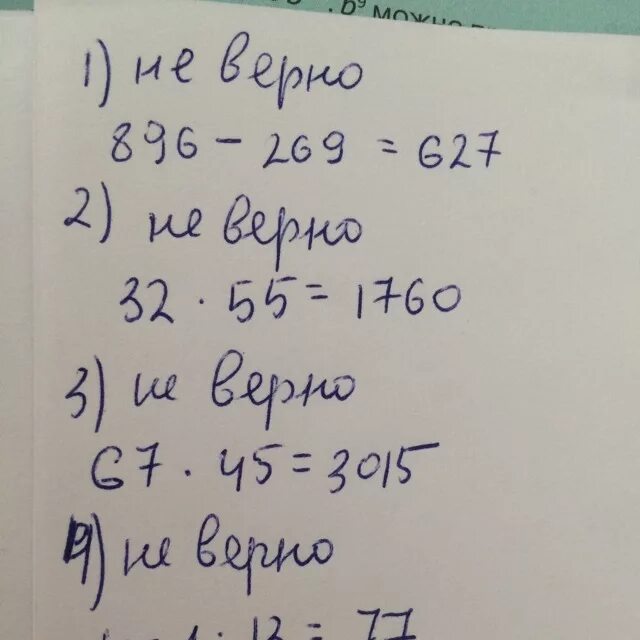 b⁹ можно
1) не верно
896 - 269 = 627
2) не верно
32 · 55 = 1760
3) не верно
67 · 45 = 3015
4) не верно
· 13 = 77